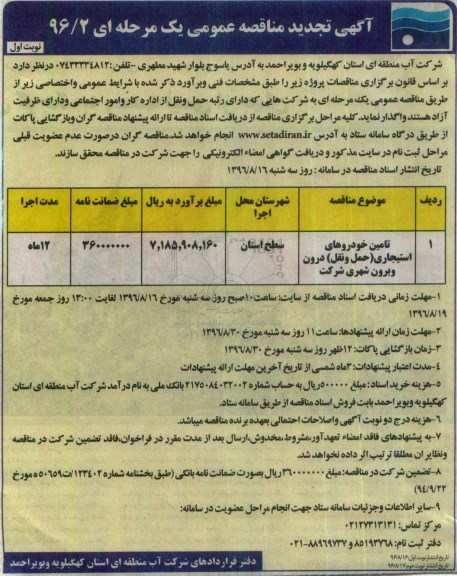 آگهی تجدید مناقصه عمومی یک مرحله ای ۹۶/۲
نوبت اول
شرکت آب منطقه ای استان کهگیلویه و بویراحمد به آدرس یاسوج بلوار شهید مطهری -تلفن:۰۷۴۳۳۳۳۴۸۱۲ درنظر دارد
بر اساس قانون برگزاری مناقصات پروژه زیر را طبق مشخصات فنی وبرآورد ذکر شده با شرایط عمومی واختصاصی زیر از
طریق مناقصه عمومی یک مرحله ای به شرکت هایی که دارای رتبه حمل ونقل از اداره کار وامور اجتماعی ودارای ظرفیت
آزاد هستند واگذار نماید. کلیه مراحل برگزاری مناقصه از دریافت اسناد مناقصه تا ارائه پیشنهاد مناقصه گران وبازگشایی پاکات
از طریق درگاه سامانه ستاد به آدرس www.setadiran.ir انجام خواهد شد. مناقصه گران درصورت عدم عضویت قبلی
مراحل ثبت نام در سایت مذکور و دریافت گواهی امضاء الکترونیکی را جهت شرکت در مناقصه محقق سازند.
تاریخ انتشار اسناد مناقصه در سامانه : روز سه شنبه ۱۳۹۶/۸/۱۶
ردیف موضوع مناقصه شهرستان محل اجرا مبلغ برآورد به ریال مبلغ ضمانت نامه مدت اجرا
۱ تامین خودروهای استیجاری(حمل ونقل) درون وبرون شهری شرکت سطح استان ۷,۱۸۵,۹۰۸,۱۶۰ ۳۶۰۰۰۰۰۰۰ ۱۲ماه
۱-مهلت زمانی دریافت اسناد مناقصه از سایت: ساعت۱۰صبح روز سه شنبه مورخ ۱۳۹۶/۸/۱۶ لغایت ۱۳:۰۰ روز جمعه مورخ
۱۳۹۶/۸/۱۹
۲-مهلت زمان ارائه پیشنهادها: ساعت۱۱ روز سه شنبه مورخ ۱۳۹۶/۸/۳۰
۳-زمان بازگشایی پاکات: ۱۲ظهر روز سه شنبه مورخ ۱۳۹۶/۸/۳۰
۴-مدت اعتبار پیشنهادات: ۳ماه شمسی از تاریخ آخرین مهلت ارائه پیشنهادات
۵-هزینه خرید اسناد: مبلغ ۵۰۰۰۰۰ریال به حساب شماره ۲۱۷۵۰۸۴۰۳۲۰۰۲ بانک ملی به نام درآمد شرکت آب منطقه ای استان
کهگیلویه وبویراحمد بابت فروش اسناد مناقصه از طریق سامانه ستاد.
۶-هزینه درج دو نوبت آگهی واصلاحات احتمالی بعهده برنده مناقصه میباشد.
۷-به پیشنهادهای فاقد امضاء تعهدآور،مشروط،مخدوش،ارسال بعد از مدت مقرر در فراخوان،فاقد تضمین شرکت در مناقصه
ونظایر ان مطلقا ترتیب اثر داده نخواهد شد.
۸-تضمین شرکت در مناقصه: مبلغ ۳۶۰۰۰۰۰۰۰ریال بصورت ضمانت نامه بانکی (طبق بخشنامه شماره ۱۲۳۴۰۲/ت۵۰۶۵۹ه مورخ
۹۴/۹/۲۲)
۹-سایر اطلاعات وجزئیات سامانه ستاد جهت انجام مراحل عضویت در سامانه:
مرکز تماس: ۰۲۱۲۷۳۱۳۱۳۱
دفتر ثبت نام: ۸۵۱۹۳۷۶۸ و ۸۸۹۶۹۷۳۷-۰۲۱
تاریخ انتشار نوبت اول:۹۶/۸/۱۶
تاریخ انتشار نوبت دوم:۹۶/۸/۱۷
دفتر قراردادهای شرکت آب منطقه ای استان کهگیلویه وبویراحمد